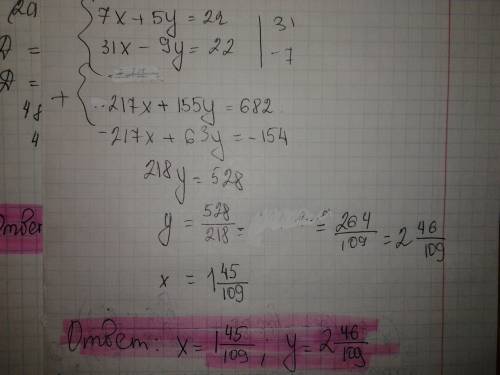 (29
7x + 5y = 22 | 31
D =
31x - 9y = 22 | -7
D =
+ 217x + 155y = 682
48
-217x + 63y = -154
4
218y = 528
Ответ
y = 528/218 = = 264/109 = 2 46/109
x = 1 45/109
Ответ: x = 1 45/109; y = 2 46/109